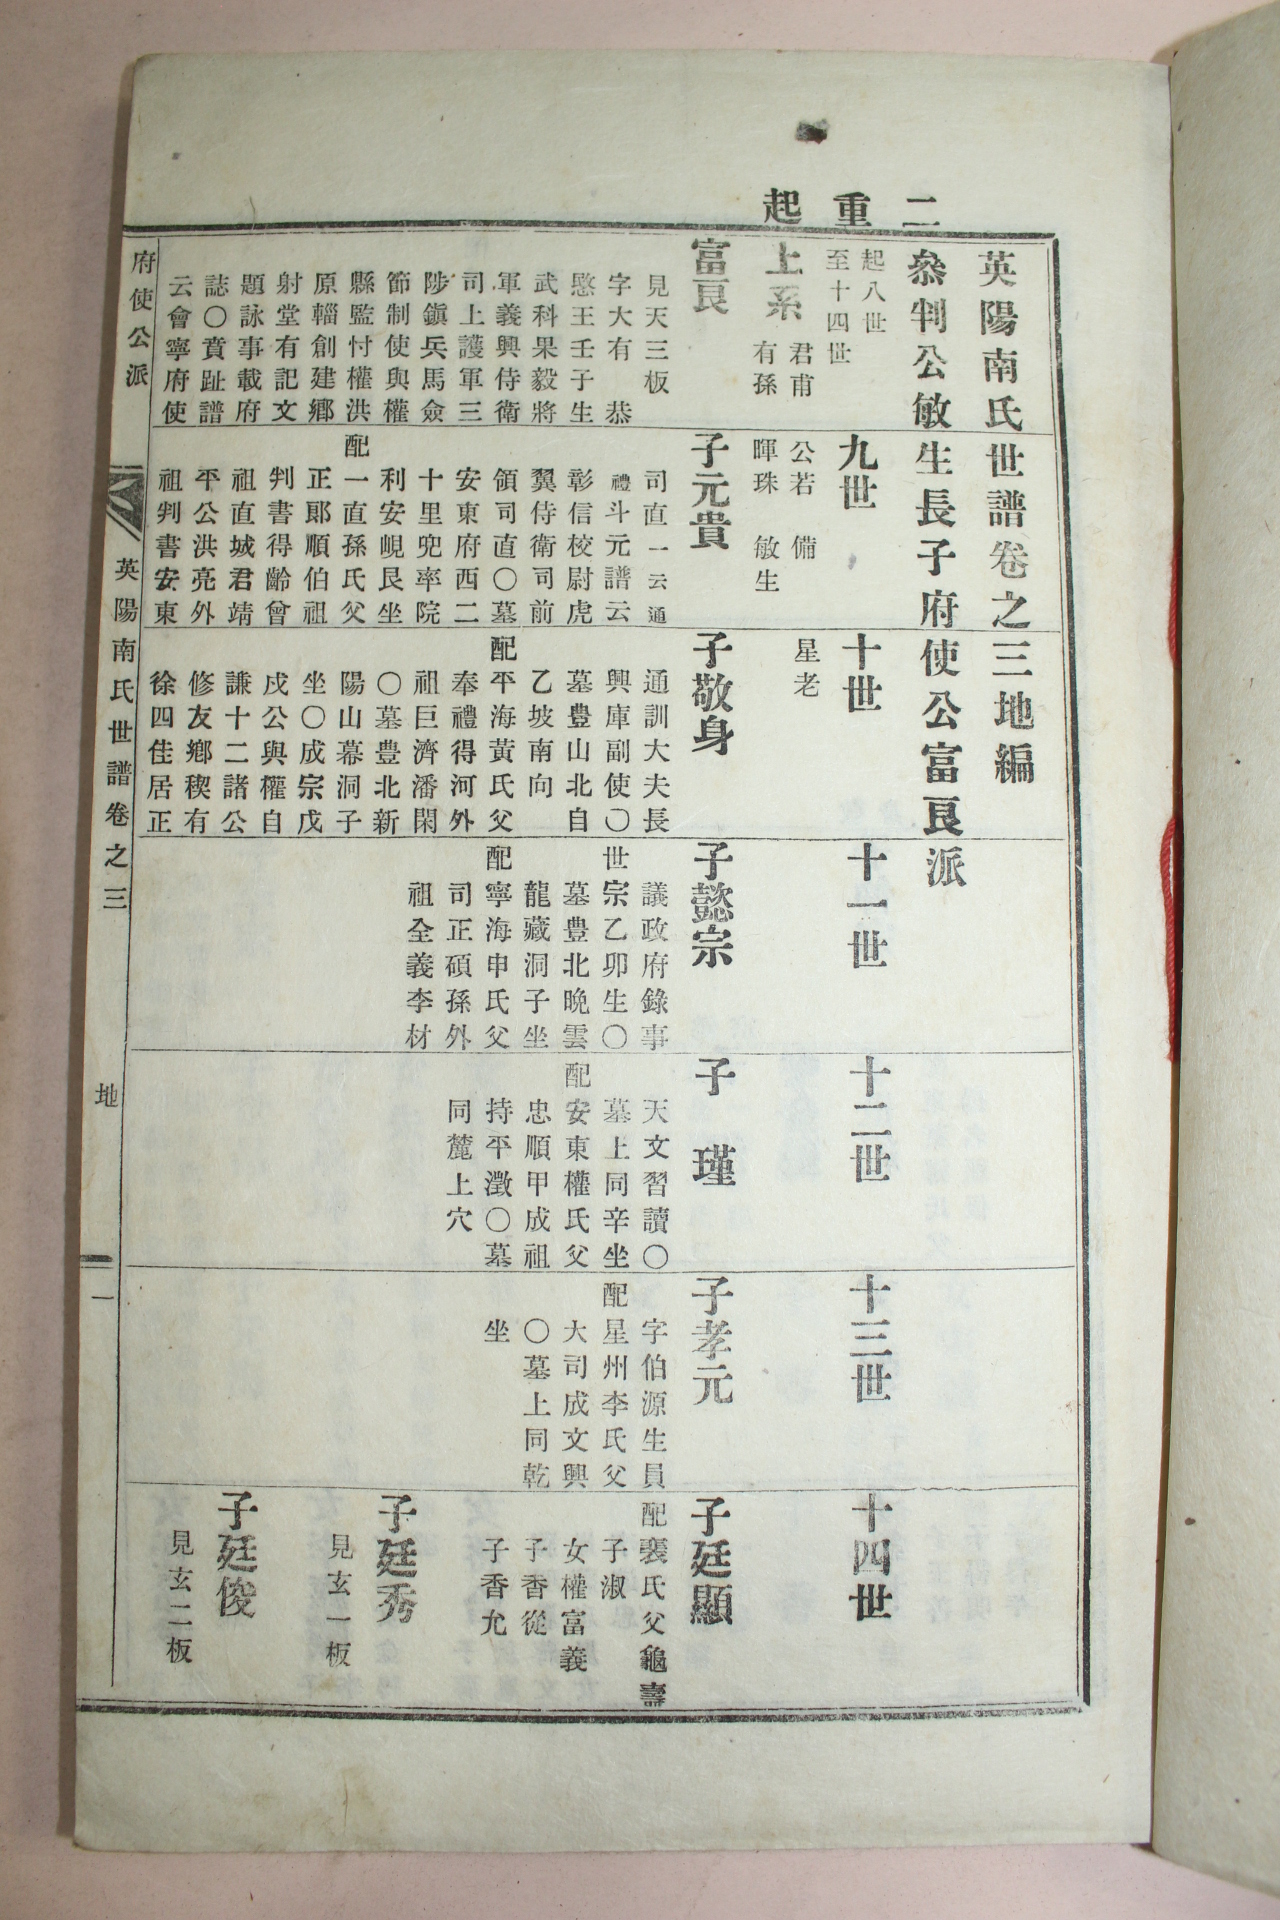 二重起
英陽南氏世譜卷之三地編
叅判公敏生長子府使公富良派
起八世
至十四世
上系
君甫
有孫
公若
暉珠
備
敏生
星老
富良
見天三板
字大有 恭
愍王壬子生
武科果毅將
軍義興侍衛
司上護軍三
陟鎭兵馬僉
節制使與權
縣監忖權洪
原輜創建鄉
射堂有記文
題詠事載府
誌〇賁趾譜
云會寧府使
九世
子元貴
司直一云通
禮斗元譜云
彰信校尉虎
翼侍衛司前
領司直〇墓
安東府西二
十里兜率院
利安峴艮坐
配一直孫氏父
正郞順伯祖
判書得齡曾
祖直城君靖
平公洪亮外
祖判書安東
十世
子敬身
通訓大夫長
興庫副使〇
墓豊山北自
乙坡南向
配平海黃氏父
奉禮得河外
祖巨濟潘閑
〇墓豊北新
陽山幕洞子
坐〇成宗戊
戌公與權自
謙十二諸公
修友鄕稧有
徐四佳居正
十一世
子懿宗
議政府錄事
世宗乙卯生〇
墓豊北晩雲
龍藏洞子坐
配寧海申氏父
司正碩孫外
祖全義李材
十二世
子瑾
天文習讀〇
墓上同辛坐
配安東權氏父
忠順甲成祖
持平澂〇墓
同麓上穴
十三世
子孝元
字伯源生員
配星州李氏父
大司成文興
〇墓上同乾
坐
十四世
子廷顯
配裵氏父龜壽
子淑
女權富義
子香從
子香允
子廷秀
見玄一板
子廷俊
見玄二板
府使公派
英陽南氏世譜卷之三
地
一